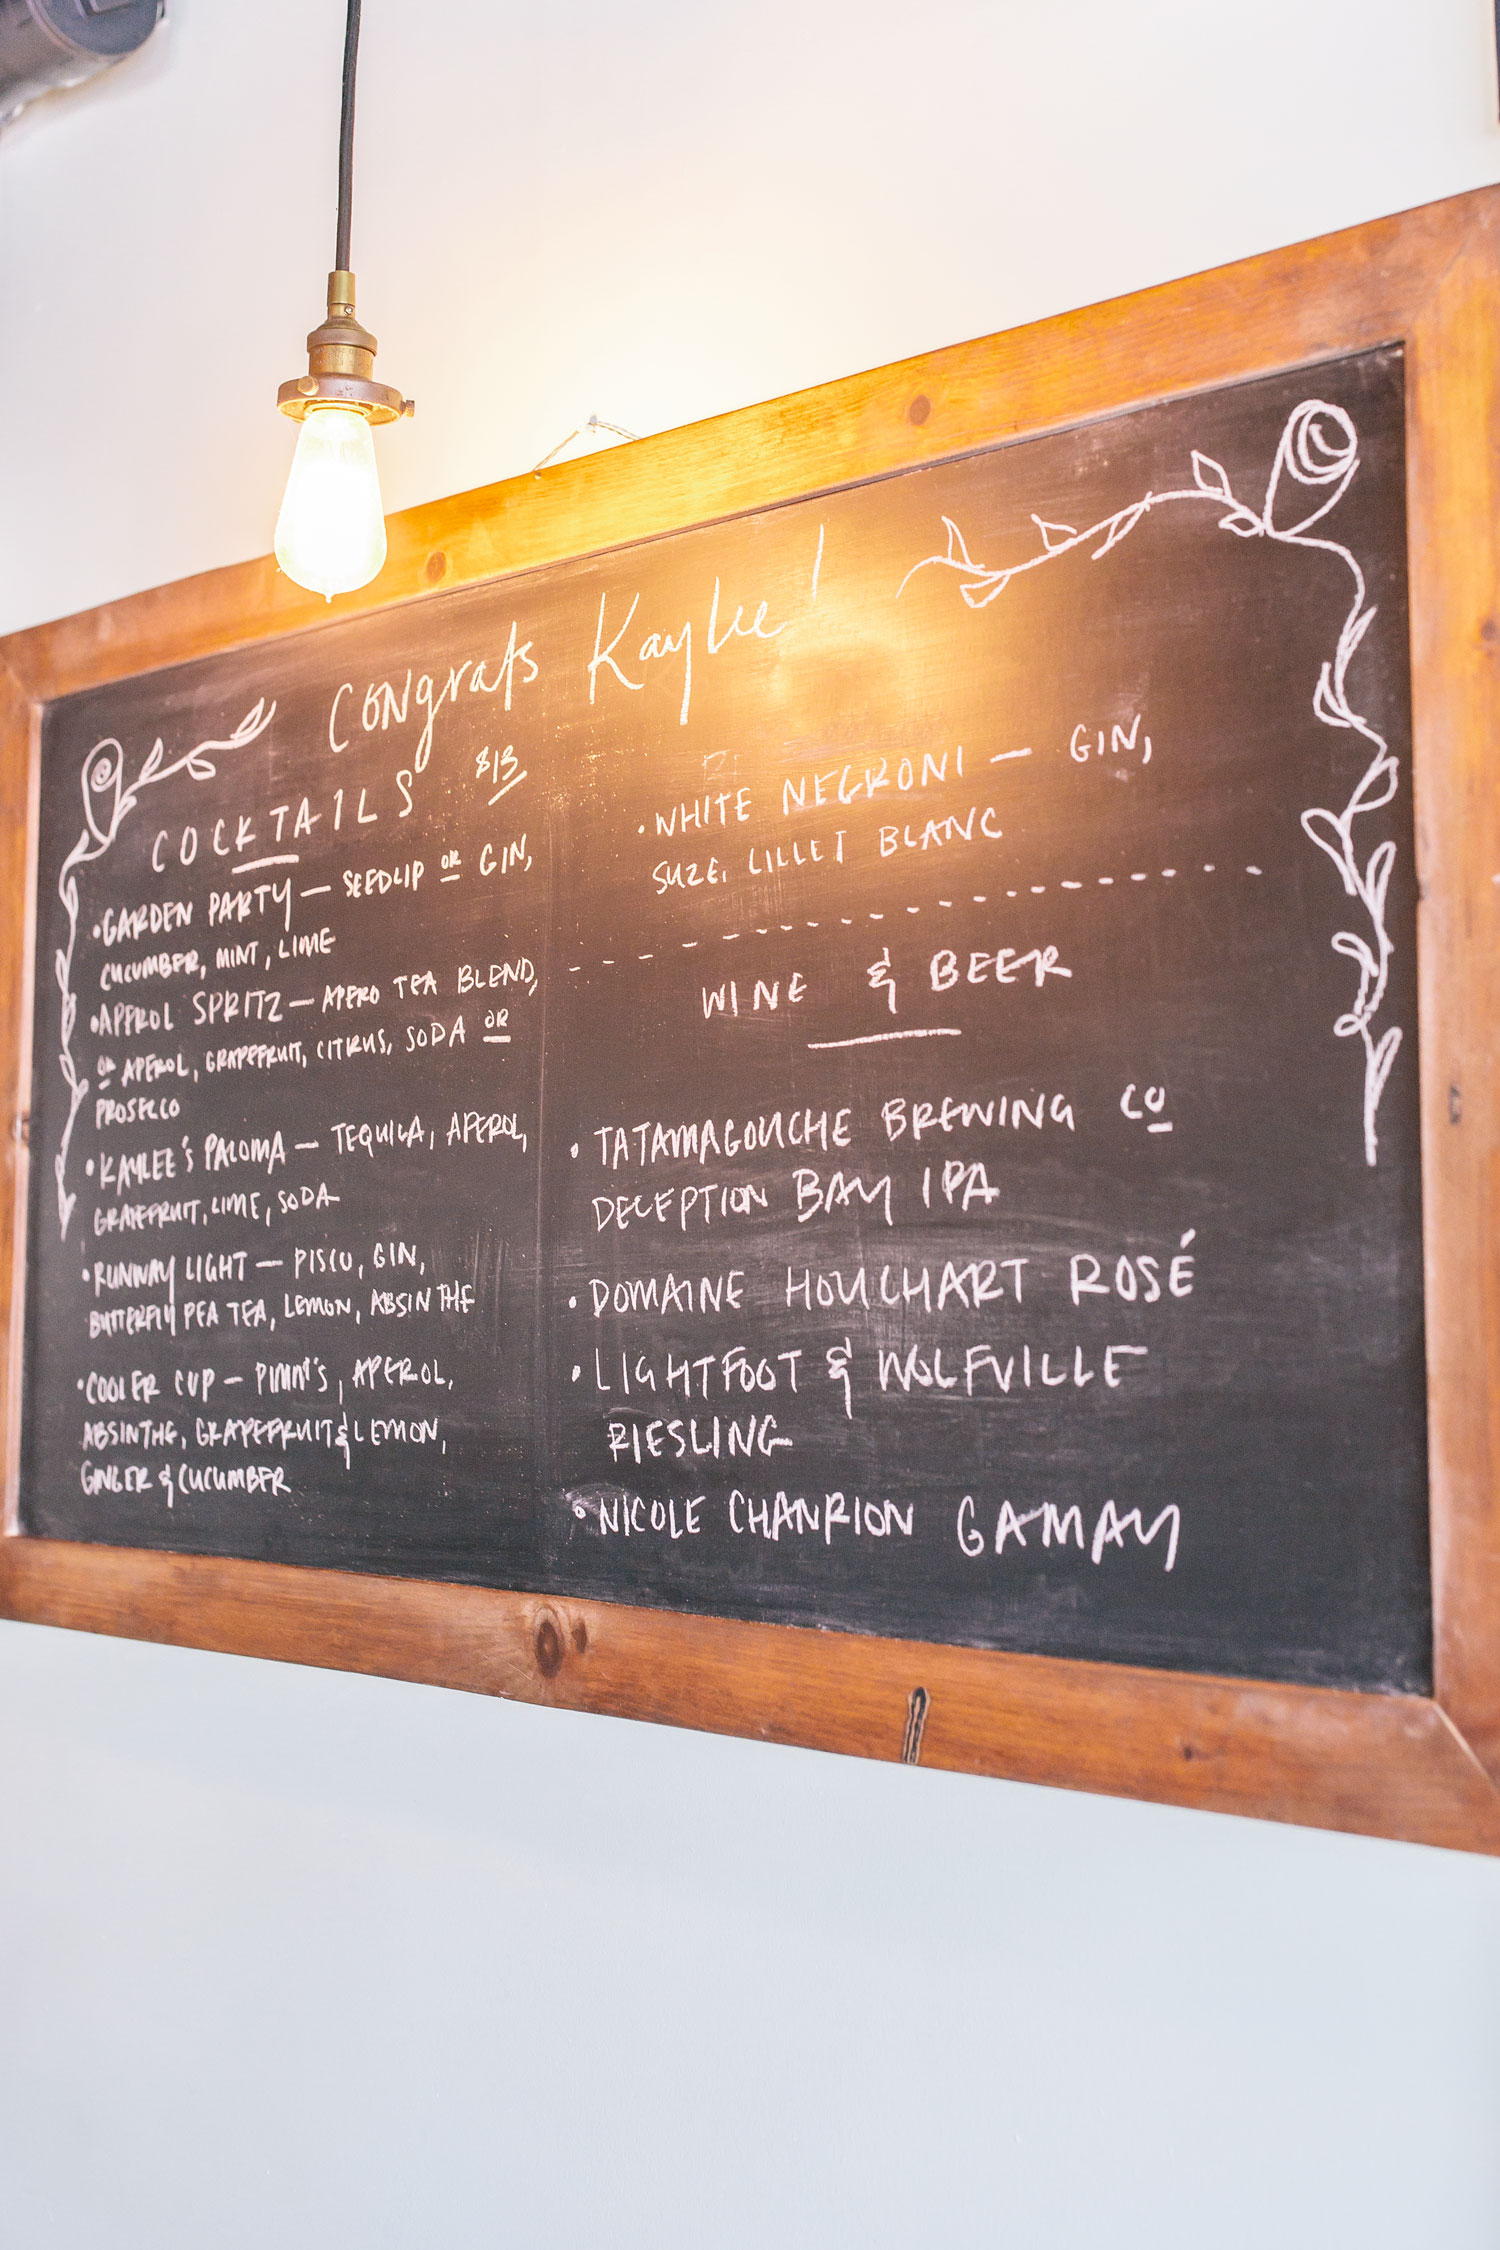 Congrats Kaylee!
COCKTAILS $13
• GARDEN PARTY — SEEDLIP OR GIN,
CUCUMBER, MINT, LIME
• APEROL SPRITZ — APERO TEA BLEND,
OR APEROL, GRAPEFRUIT, CITRUS, SODA OR
PROSECCO
• KAYLEE'S PALOMA — TEQUILA, APEROL,
GRAPEFRUIT, LIME, SODA
• RUNWAY LIGHT — PISCO, GIN,
BUTTERFLY PEA TEA, LEMON, ABSINTHE
• COOLER CUP — PIMM'S, APEROL,
ABSINTHE, GRAPEFRUIT & LEMON,
GINGER & CUCUMBER
• WHITE NEGRONI — GIN,
SUZE, LILLET BLANC
WINE & BEER
• TATAMAGOUCHE BREWING CO
DECEPTION BAY IPA
• DOMAINE HOUCHART ROSÉ
• LIGHTFOOT & WOLFVILLE
RIESLING
• NICOLE CHANRION GAMAY